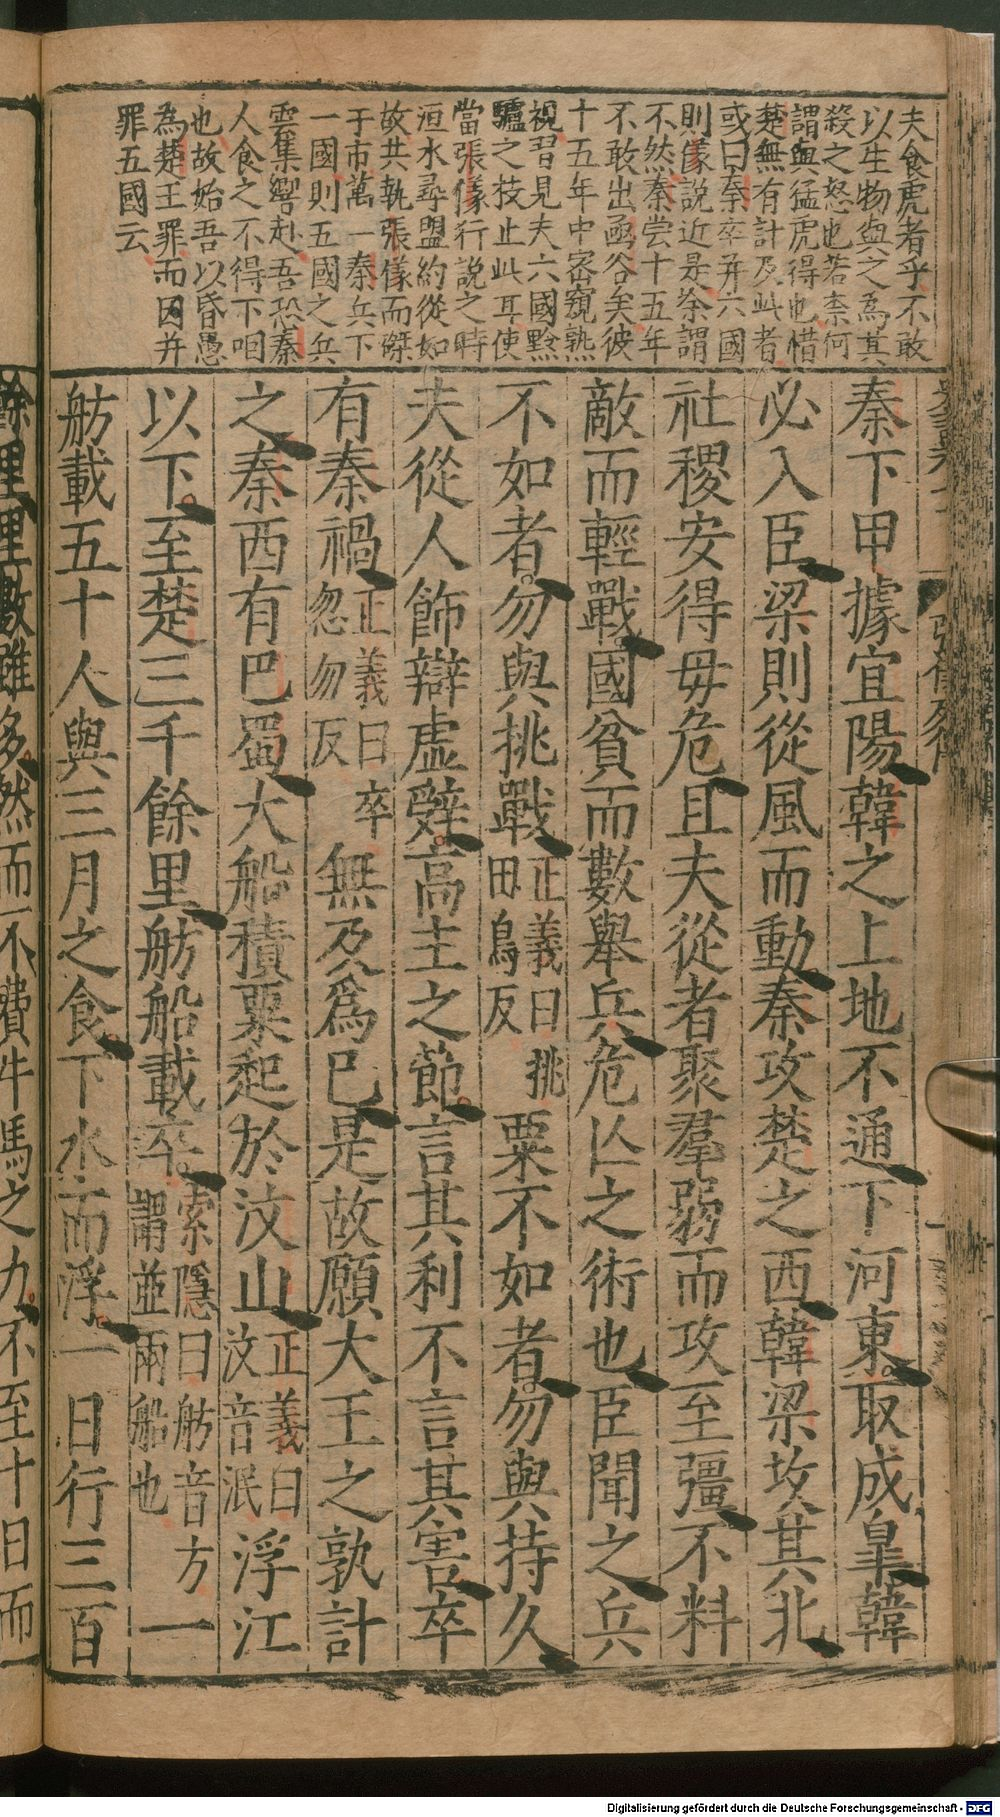 夫食虎者乎不敢
以生物與之為其
殺之怒也若柰何
謂與猛虎得也惜
楚無有計及此者
或曰秦卒并六國
則儀說近是余謂
不然秦嘗十五年
不敢出函谷矣彼
十五年中密窺熟
視習見夫六國黔
驢之技止此耳使
當張儀行說之時
洹水尋盟約從如
故共執張儀而磔
于市萬一秦兵下
一國則五國之兵
雲集響赴吾恐秦
人食之不得下咽
也故始吾以昏愚
為楚王罪而因并
罪五國云
秦下甲據宜陽韓之上地不通下河東取成皐韓
必入臣梁則從風而動秦攻楚之西韓梁攻其北
社稷安得毋危且夫從者聚羣弱而攻至彊不料
敵而輕戰國貧而數舉兵危亾之術也臣聞之兵
不如者勿與挑戰正義曰挑田鳥反粟不如者勿與持久
夫從人飾辯虛辭高主之節言其利不言其害卒
有秦禍正義曰卒忽勿反無及爲已是故願大王之孰計
之秦西有巴蜀大船積粟起於汶山正義曰汶音泯浮江
以下至楚三千餘里舫船載卒索隱曰舫音方謂並兩船也一
舫載五十人與三月之食下水而浮一日行三百
餘里里數雖多然而不費牛馬之力不至十日而
Digitalisierung gefördert durch die Deutsche Forschungsgemeinschaft - DFG